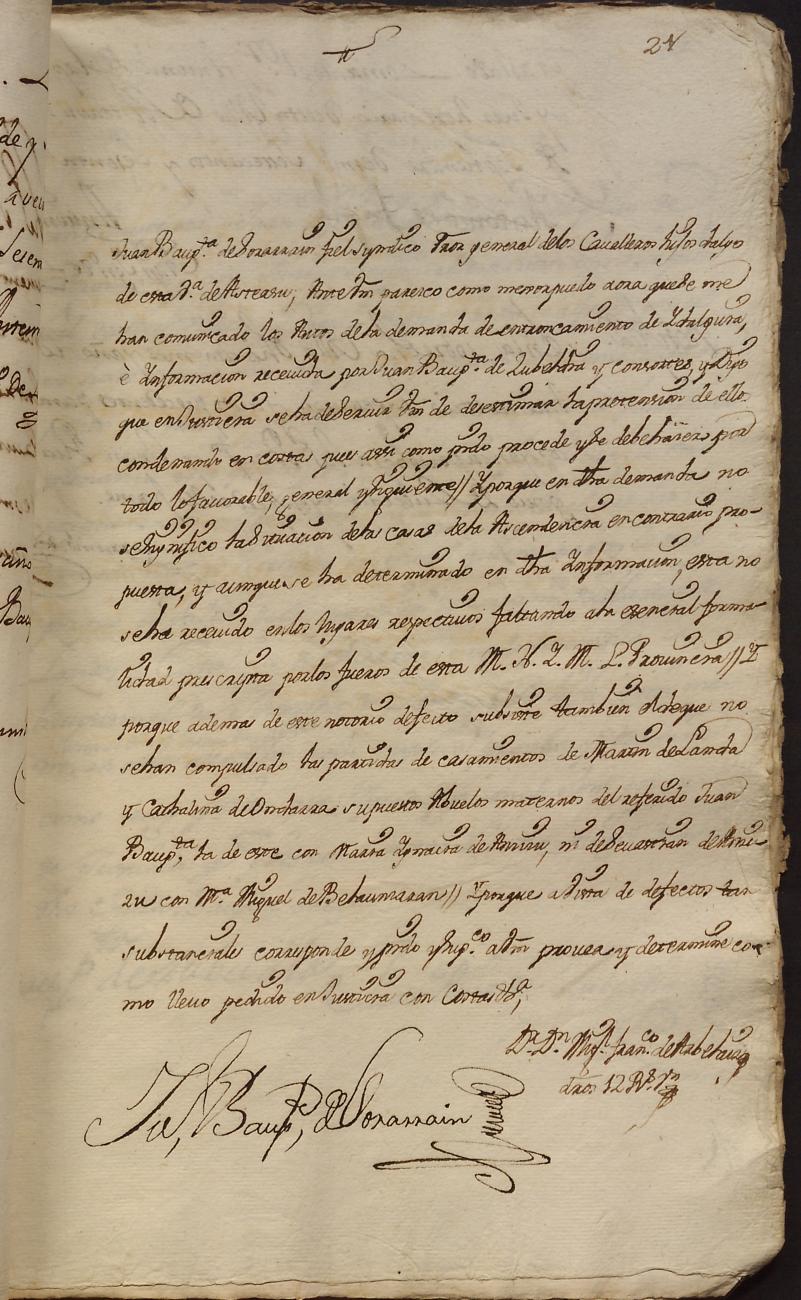 24
Juan Baup.ta de Sorarrain fiel syndico Pror general delos Cavalleros hijos dalgo
de esta V.a de Asteasu; Ante Vm paresco como menor puedo aora que se me
han comunicado los Autos dela demanda de entroncamiento de Idalguia,
è Informacion recevida por Juan Baup.ta de Zubeldia y consortes, y Digo
que en Justicia se ha de servir Vm de desestimar la pretension de ello
condenando en costas pues assi como pido procede y se debe hàzer por
todo lo favorable, general y siguiente // Yporque en dha demanda no
se hysnifico la situacion delas casas dela Ascendencia en contrario pro-
puesta, y aunque se ha determinado en dha Informacion, esta no
se ha recevido en los lugares respectivos faltando ala esencial forma-
lidad prescripta por los fueros de esta M. N. Y. M. L. Provincia // Y
porque ademas de este notorio defecto subsiste tambien el de que no
se han compulsado las partidas de casamientos de Martin de Landa
y Cathalina de Ondarra supuestos Abuelos maternos del referido Juan
Baup.ta, la de este con Maria Ygnacia de, ni de Sevastian de
con M.a Miguel de Belaunzaran // Yporque a vista de defectos tan
substanciales corresponde y pido y sup.co a Vm provea y determine co-
mo llevo pedido en Justicia con Costas &.a;
D.r D.n Mig.l fran.co de Arbelaiz
dros 12 R.s V.n
Ju, Baup, de Sorarrain